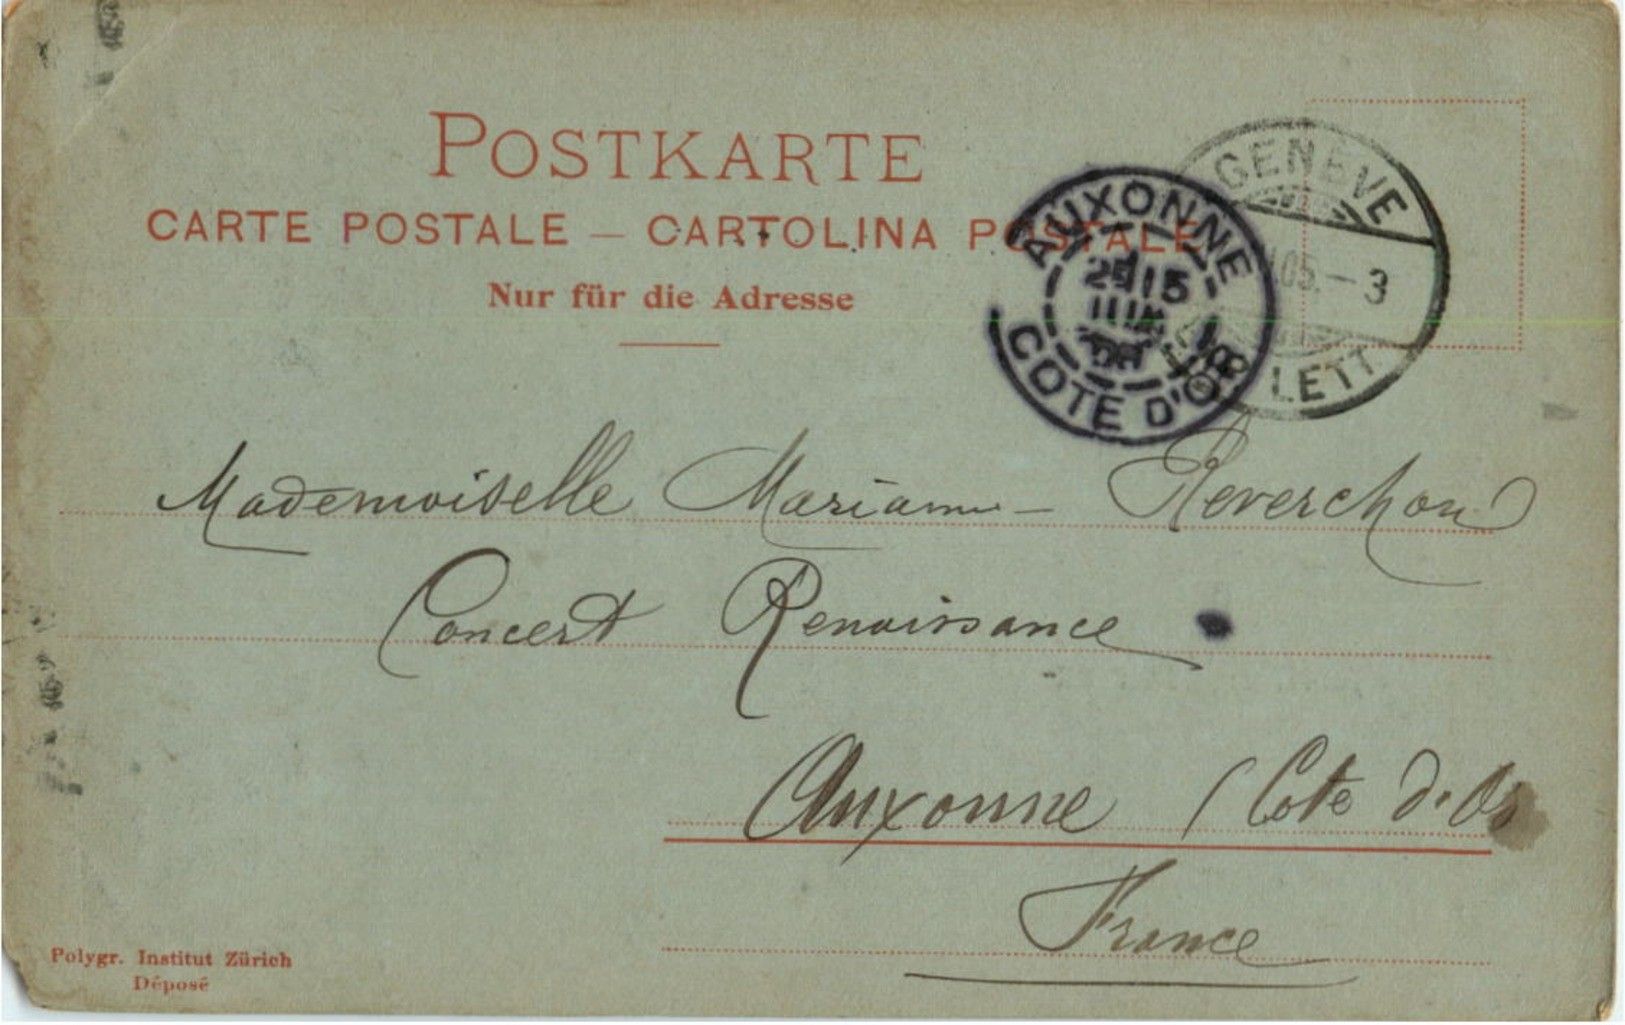 POSTKARTE
CARTE POSTALE — CARTOLINA POSTALE
Nur für die Adresse
GENÈVE
05. – 3
LETT.
AUXONNE
COTE D'OR
Mademoiselle Marianne Reverchon
Concert Renaissance
Auxonne (Cote d'Or
France
Polygr. Institut Zürich
Déposé